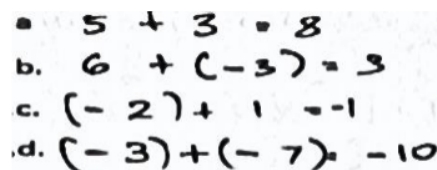 a 5 + 3 = 8
b. 6 + (-3) = 3
c. (-2) + 1 = -1
d. (-3) + (-7) = -10